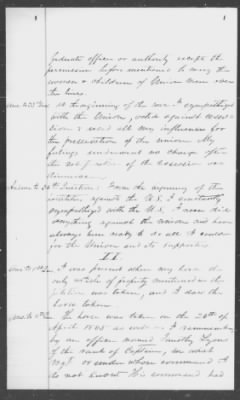 federate officer or authority except the
permission before mentioned to carry the
women & children of Union men over
the lines.
Ans to 33d Ques At the beginning of the war I sympathized
with the Union, voted against secession
& used all my influence for
the preservation of the union. My
feelings underwent no change after
the ratification of the secession
ordinance
Answer to 34 Question: From the beginning of the
rebellion, against the U.S. I constantly
sympathized with the U.S. I never did
anything against the union and have
always been ready to do all I could
for the Union and its supporters
II
Ans to 1st Ques I was present when my horse the
only article of property mentioned in the
petition was taken, and I saw the
horse taken
Ans to 2d Ques The horse was taken on the 20th of
April 1865 as well as I remember
by an officer named Timothy Lyons
of the rank of Captain, in what
Regt or under whose command I
do not know. His command had